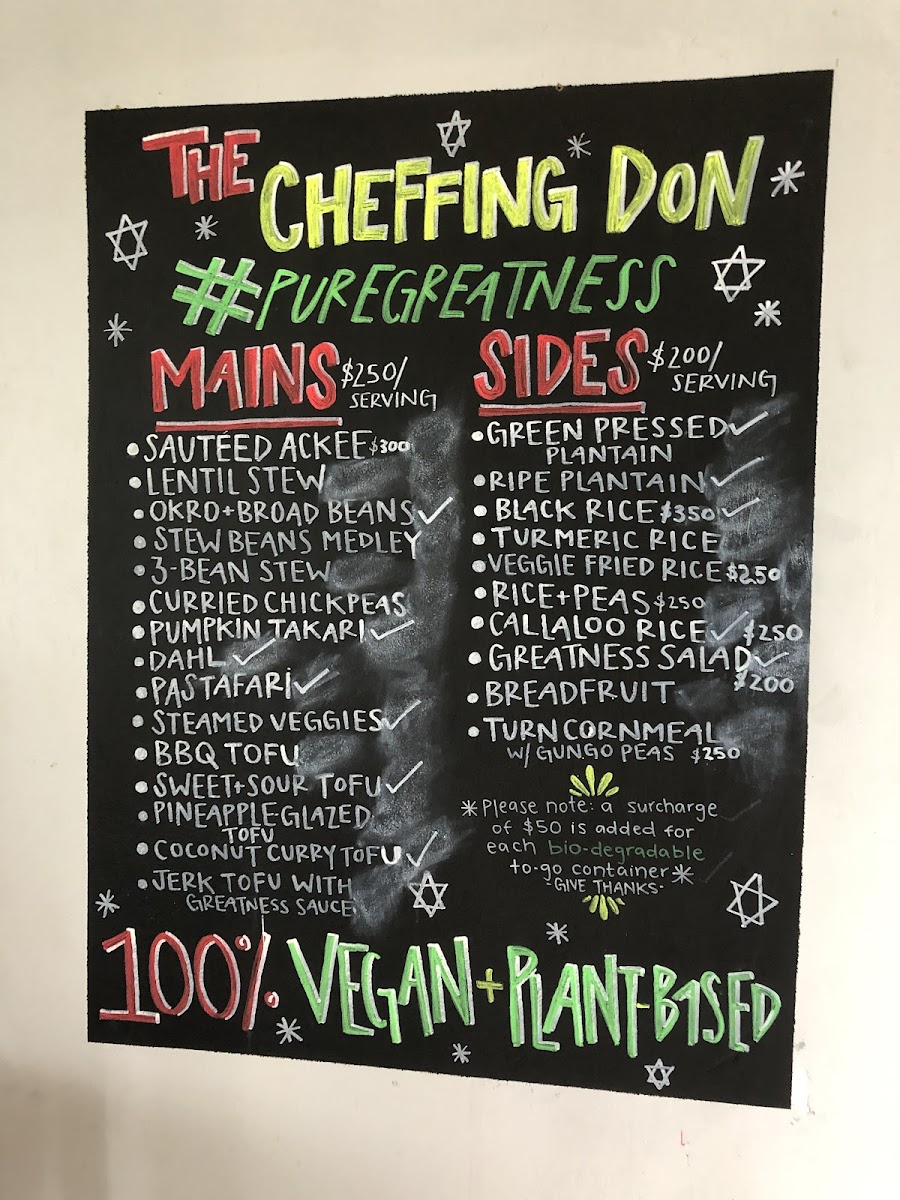 THE CHEFFING DON
#PUREGREATNESS
MAINS $250/
SERVING
• SAUTÉED ACKEE $300
• LENTIL STEW
• OKRO+BROAD BEANS ✓
• STEW BEANS MEDLEY
• 3-BEAN STEW
• CURRIED CHICKPEAS
• PUMPKIN TAKARI ✓
• DAHL ✓
• PASTAFARI ✓
• STEAMED VEGGIES ✓
• BBQ TOFU
• SWEET+SOUR TOFU ✓
• PINEAPPLE-GLAZED
TOFU
• COCONUT CURRY TOFU ✓
• JERK TOFU WITH
GREATNESS SAUCE
SIDES $200/
SERVING
• GREEN PRESSED ✓
PLANTAIN
• RIPE PLANTAIN ✓
• BLACK RICE $350 ✓
• TURMERIC RICE
• VEGGIE FRIED RICE $250
• RICE+PEAS $250
• CALLALOO RICE ✓ $250
• GREATNESS SALAD ✓
$200
• BREADFRUIT
• TURN CORNMEAL
W/ GUNGO PEAS $250
*Please note: a surcharge
of $50 is added for
each bio-degradable
to-go container*
-GIVE THANKS-
100% VEGAN + PLANT-BASED